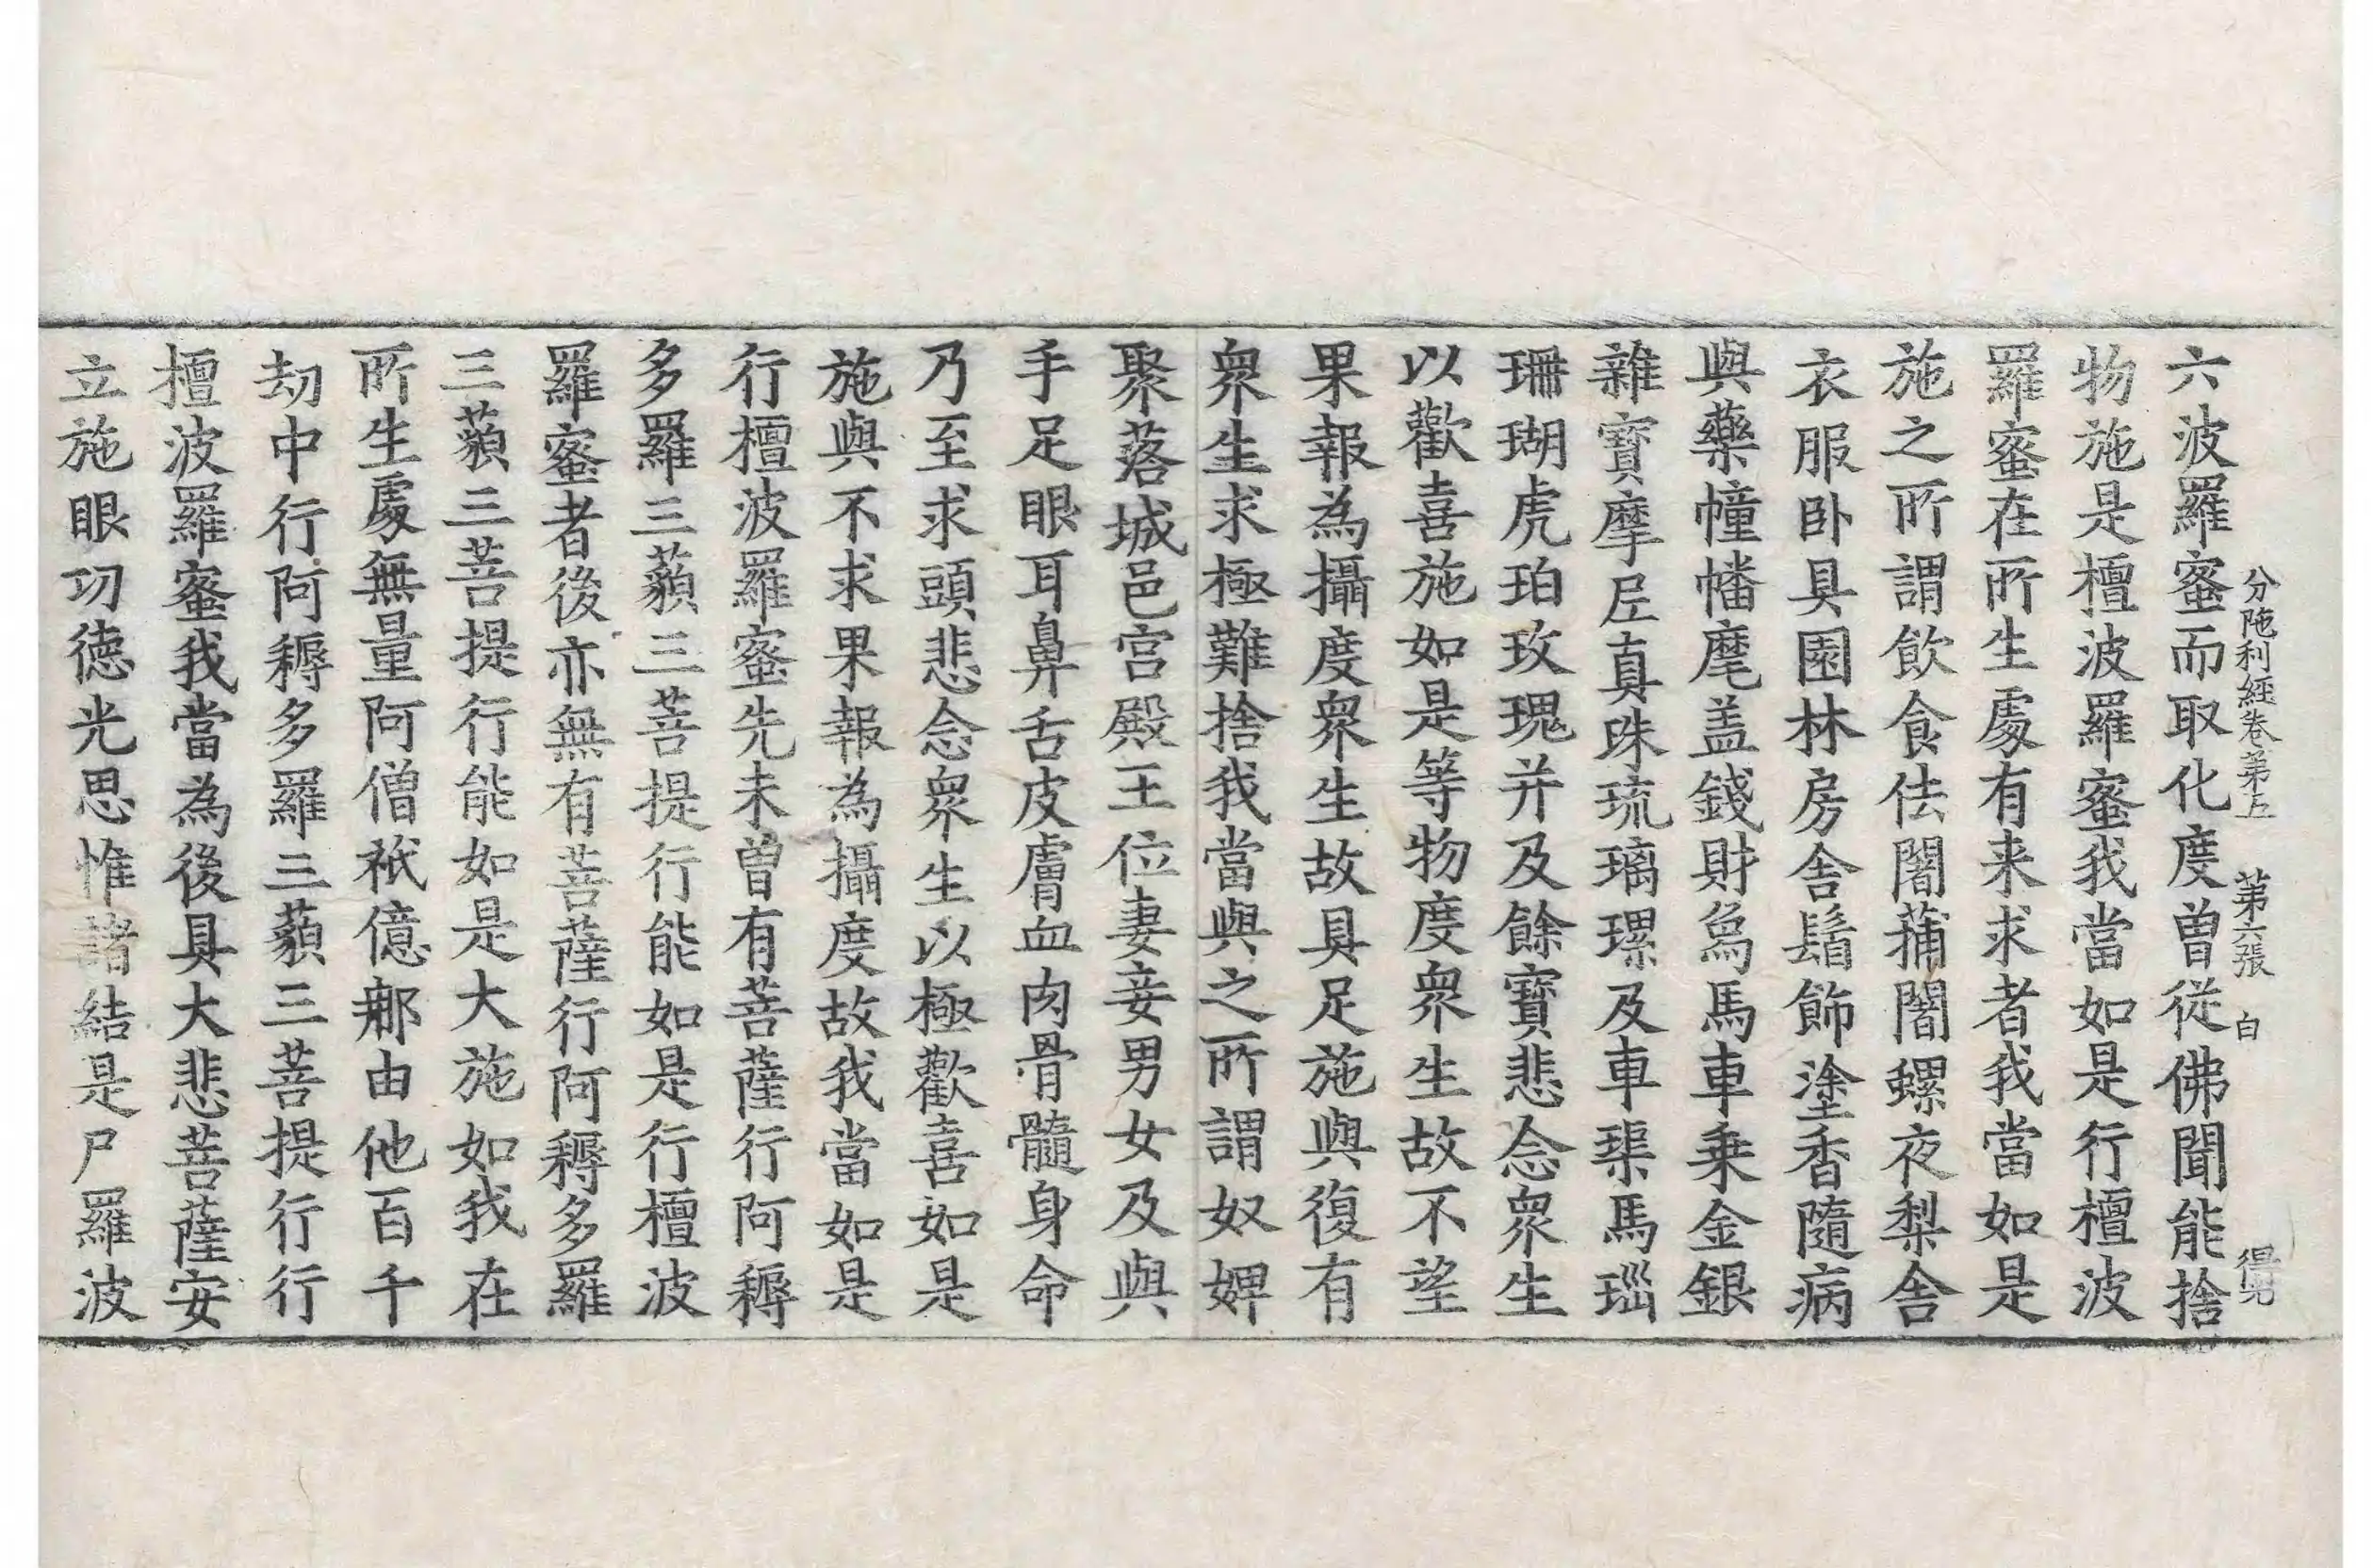 分陁利經卷第五 第六張 白
六波羅蜜而取化度曽從佛聞能捨
物施是檀波羅蜜我當如是行檀波
羅蜜在所生處有来求者我當如是
施之所謂飲食佉闍蒱闍螺夜梨舎
衣服卧具園林房舎鬘飾塗香隨病
與藥幢幡麾盖錢財象馬車乗金銀
雜寶摩𡰱真珠琉璃瑮及車璖馬瑙
珊瑚虎珀玫瑰并及餘寶悲念衆生
以歡喜施如是等物度衆生故不望
果報為攝度衆生故具足施與復有
衆生求極難捨我當與之所謂奴婢
聚落城邑宫殿王位妻妾男女及與
手足眼耳鼻舌皮膚血肉骨髓身命
乃至求頭悲念衆生以極歡喜如是
施與不求果報為攝度故我當如是
行檀波羅蜜先未曽有菩薩行阿耨
多羅三藐三菩提行能如是行檀波
羅蜜者後亦無有菩薩行阿耨多羅
三藐三菩提行能如是大施如我在
所生處無量阿僧祇億那由他百千
劫中行阿耨多羅三藐三菩提行行
檀波羅蜜我當為後具大悲菩薩安
立施眼功徳光思惟諸結是尸羅波